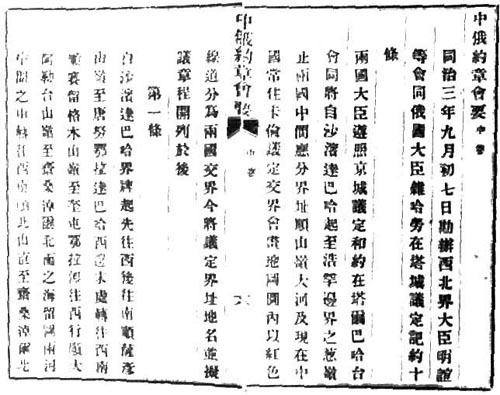 中俄約章會要 中卷
同治三年九月初七日勘辦西北界大臣明誼
等會同俄國大臣雜哈勞在塔城議定記約十
條
兩國大臣遵照京城議定和約在塔爾巴哈台
會同將自沙濱達巴哈起至浩罕邊界之蔥嶺
止兩國中間應分界址順山嶺大河及現在中
國常住卡倫議定交界會畫地圖圖內以紅色
中俄約章會要 中卷
線道分為兩國交界今將議定界址地名並擬
議章程開列於後
第一條
自沙濱達巴哈界牌起先往西後往南順薩彥
山嶺至唐努鄂拉達巴哈西邊末處轉往西南
順賽留格木山嶺至奎屯鄂拉即往西行順大
阿勒台山嶺至齋桑淖爾北面之海留圖兩河
中間之山轉往西南順此山直至齋桑淖爾北